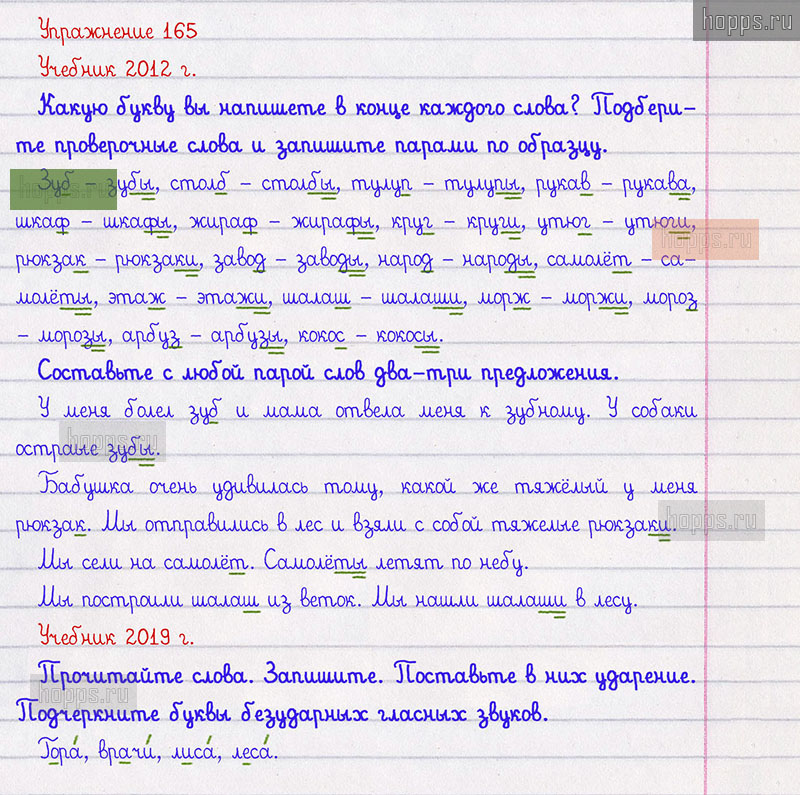 hopps.ru
Упражнение 165
Учебник 2012 г.
Какую букву вы напишете в конце каждого слова? Подбери-
те проверочные слова и запишите парами по образцу.
Зуб – зубы, столб – столбы, тулуп – тулупы, рукав – рукава,
шкаф – шкафы, жираф – жирафы, круг – круги, утюг – утюги,
рюкзак – рюкзаки, завод – заводы, народ – народы, самолёт – са-
молёты, этаж – этажи, шалаш – шалаши, морж – моржи, мороз
– морозы, арбуз – арбузы, кокос – кокосы.
Составьте с любой парой слов два-три предложения.
У меня болел зуб и мама отвела меня к зубному. У собаки
острые зубы.
Бабушка очень удивилась тому, какой же тяжёлый у меня
рюкзак. Мы отправились в лес и взяли с собой тяжелые рюкзаки.
Мы сели на самолёт. Самолёты летят по небу.
Мы построили шалаш из веток. Мы нашли шалаши в лесу.
Учебник 2019 г.
Прочитайте слова. Запишите. Поставьте в них ударение.
Подчеркните буквы безударных гласных звуков.
Гора́, врачи́, лиса́, леса́.
hopps.ru
hopps.ru
hopps.ru
hopps.ru
hopps.ru